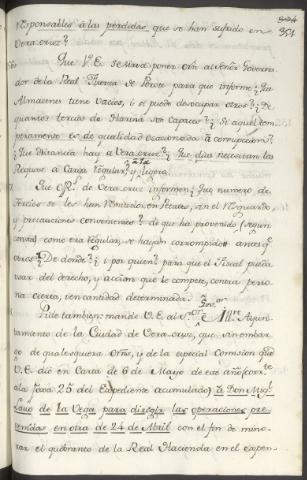 354
responsables à las perdidas, que se han sufrido en
Veracruz?
Que V.E. se sirva poner ofn. al Señor Governador
dor de la Real Fuerza de Perote para que informe ¿Qa
Almacenes tiene vacios, ó se puede desocupar otros? ¿De
quantos tercios de Harina son capaces? ¿Si aquel temperamento
es de qualidad ocasionada à corrupcion?
¿Que distancia hay a Veracruz? ¿Que dias necesitan las
Requas à Carga regular, y ligera?
Que de Veracruz informen ¿Que numero de
Tercios se les han remitido
y precauciones convenientes? de que ha provenido (segun
como era regular, se hayan corrompido
otros? ¿De donde? ¿ó por quien? para que el Fiscal pueda
usar del derecho, y accion que le compete, contra persona
cierta, i en cantidad determinada.
Pide tambien: mande V.E. al Sor. è Illre. Ayuntamiento
de la Ciudad de Veracruz, que sin embargo
de qualesquiera Orns. y de la especial Comision que
V.E. dió en Carta de 6 de Mayo de este año (corrte
a la foxa 25 del Expediente acumulado) à Don Migl.
Laso de la Vega para dirigir las operaciones prevenidas
en otra de 24 de Abril con el fin de minorar
el quibranto de la Real Hacienda en el expen-